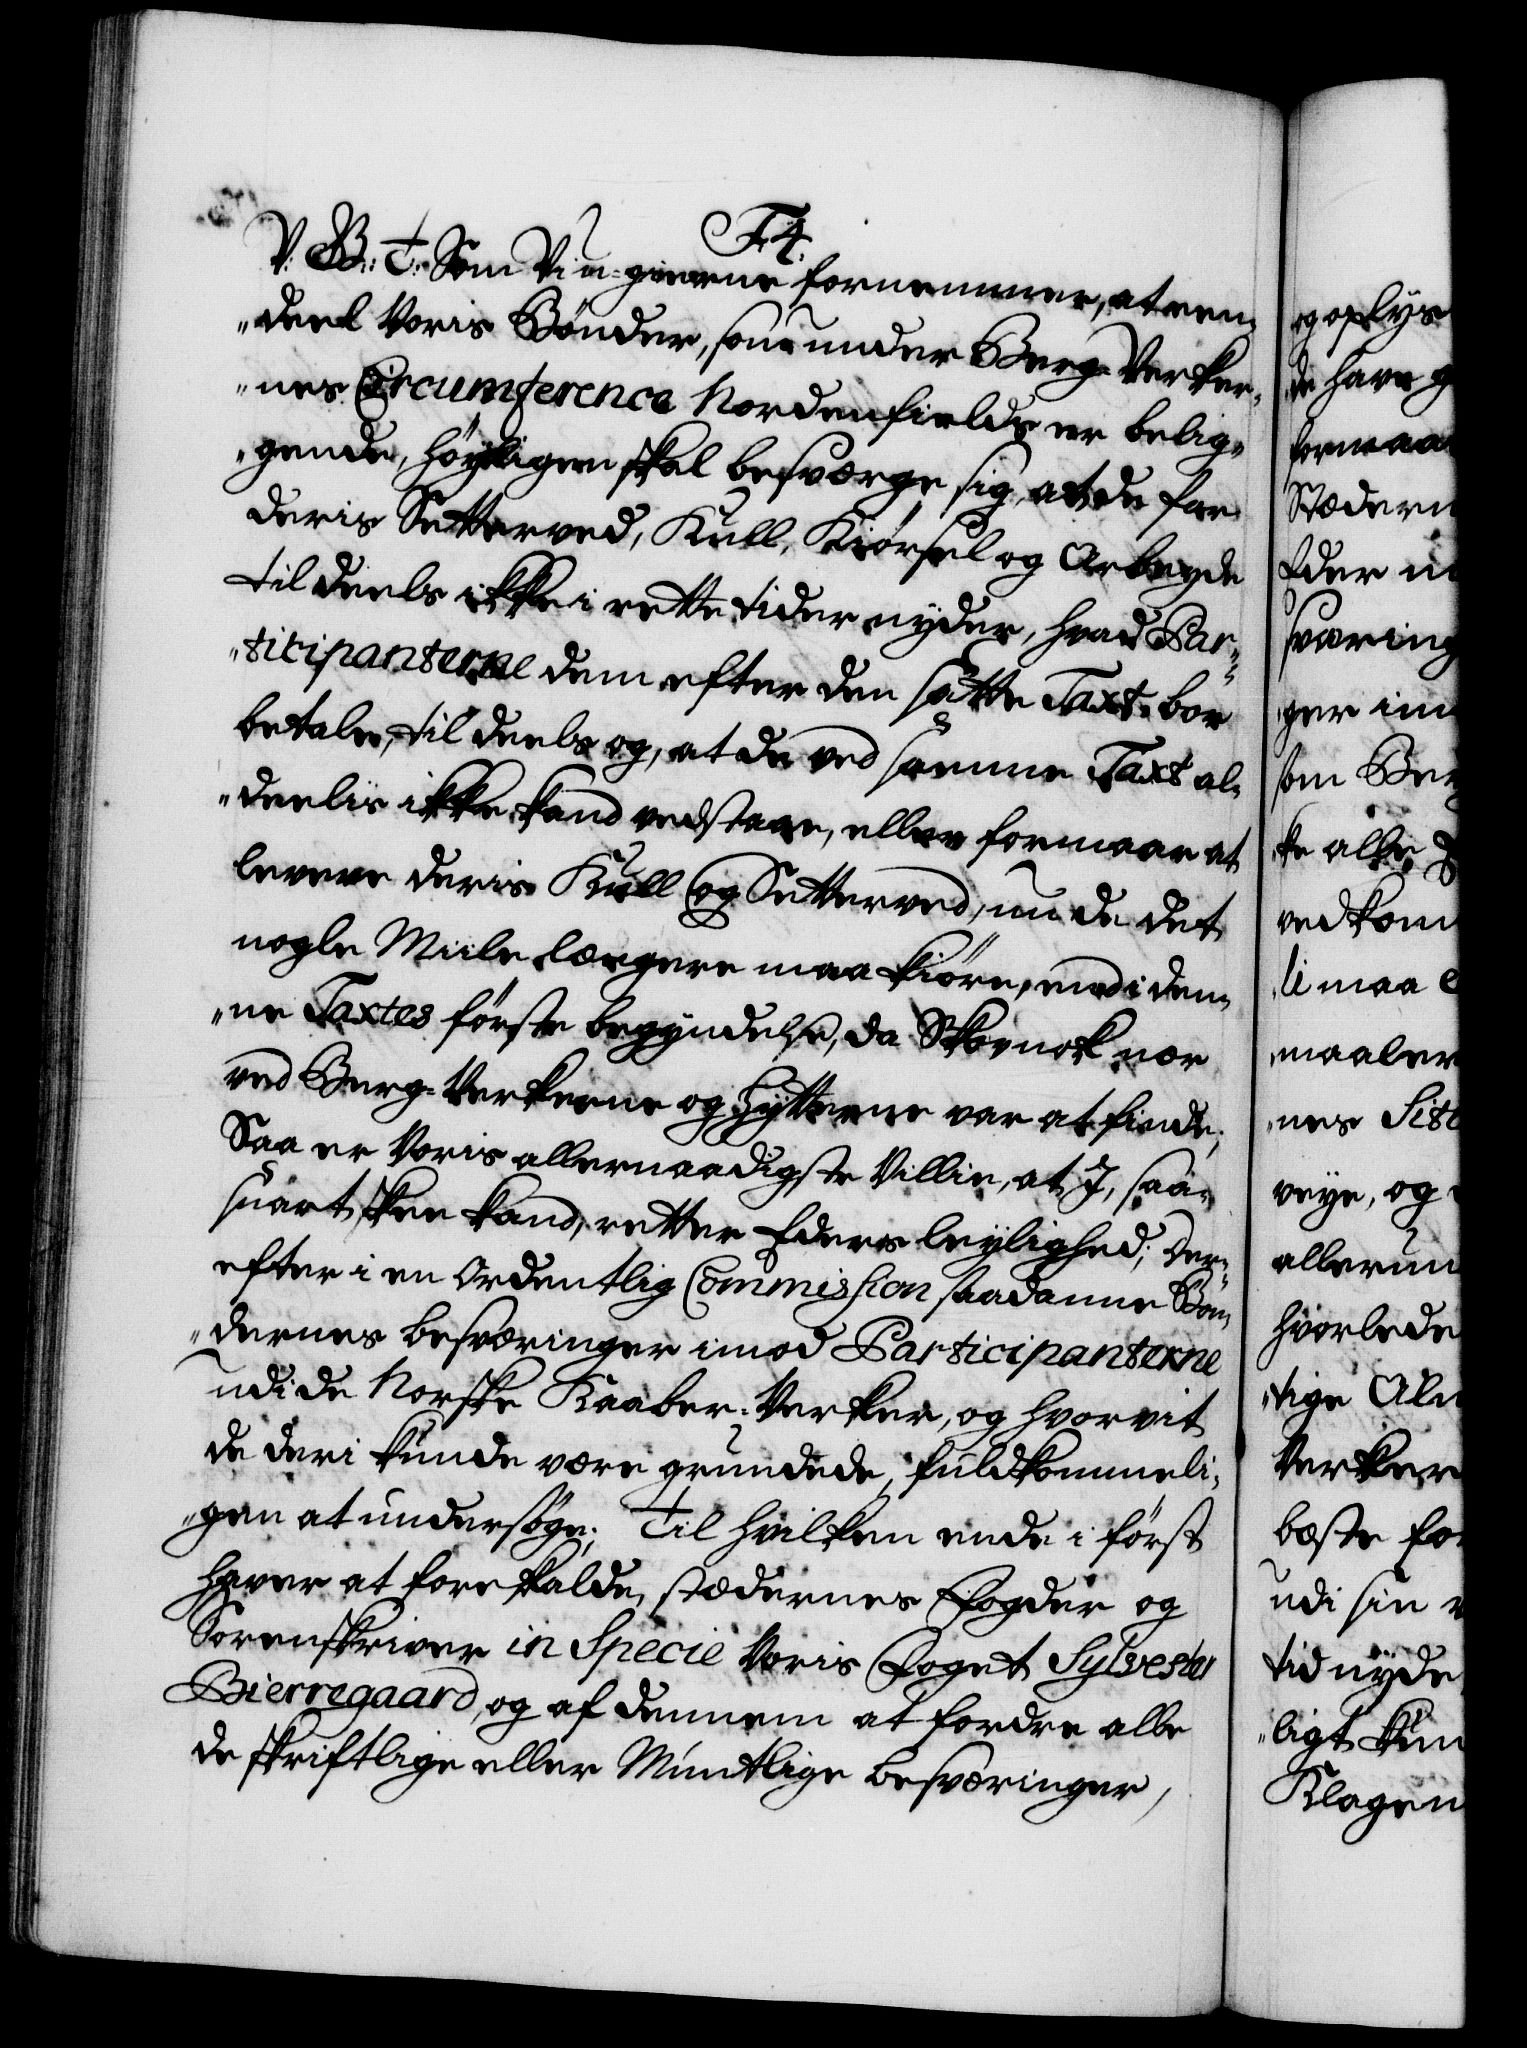 F. 4.
V: B: T: Som Vi u-gierne fornemmer, at een
„deel Voris Bønder, som under Berg-Verker-
„nes Circumference Nordenfields er belig-
„gende, høyligen skal besværge sig, at de for
deris Setterved, Kull, Kiørsel og Arbeyde
til deels ikke i rette tider nyder, hvad Par-
„ticipanterne dem efter den satte Taxt bør
betale, til deels og, at de ved samme Taxt al-
„deelis ikke kand vedstaae, eller formaar at
levere deris Kull og Setterved, nu de det
nogle Miile længere maa kiøre, end i den-
„ne Taxtes første begyndelse, da Skov nok nær
ved Berg-Verkerne og Hytterne var at finde,
Saa er Voris allernaadigste Villie, at I, saa-
snart skee kand, retter Eders leylighed, Der-
efter i en Ordentlig Commission saadanne Bøn-
„dernes besværinger imod Participanterne
udi de Norske Kaaber-Verker, og hvorvit
de deri kunde være grundede, fuldkommeli-
„gen at undersøge; Til hvilken ende i først
haver at forekalde, stædernes Fogder og
Sorenskriver in Specie Voris Foget Sylvester
Bierregaard, og af dennem at fordre alle
de skriftlige eller Mundtlige besværinger,
og oplys
de have g
formaa
Stædern
Eder
svaring
ger
som Ber
ke alle
vedkom
li maa
maaler
nes Sist
veye, og
allerun
hvorlede
„tige Alm
Verker
beste for
udi sin
tid nyde
„ligt kun
Klagen